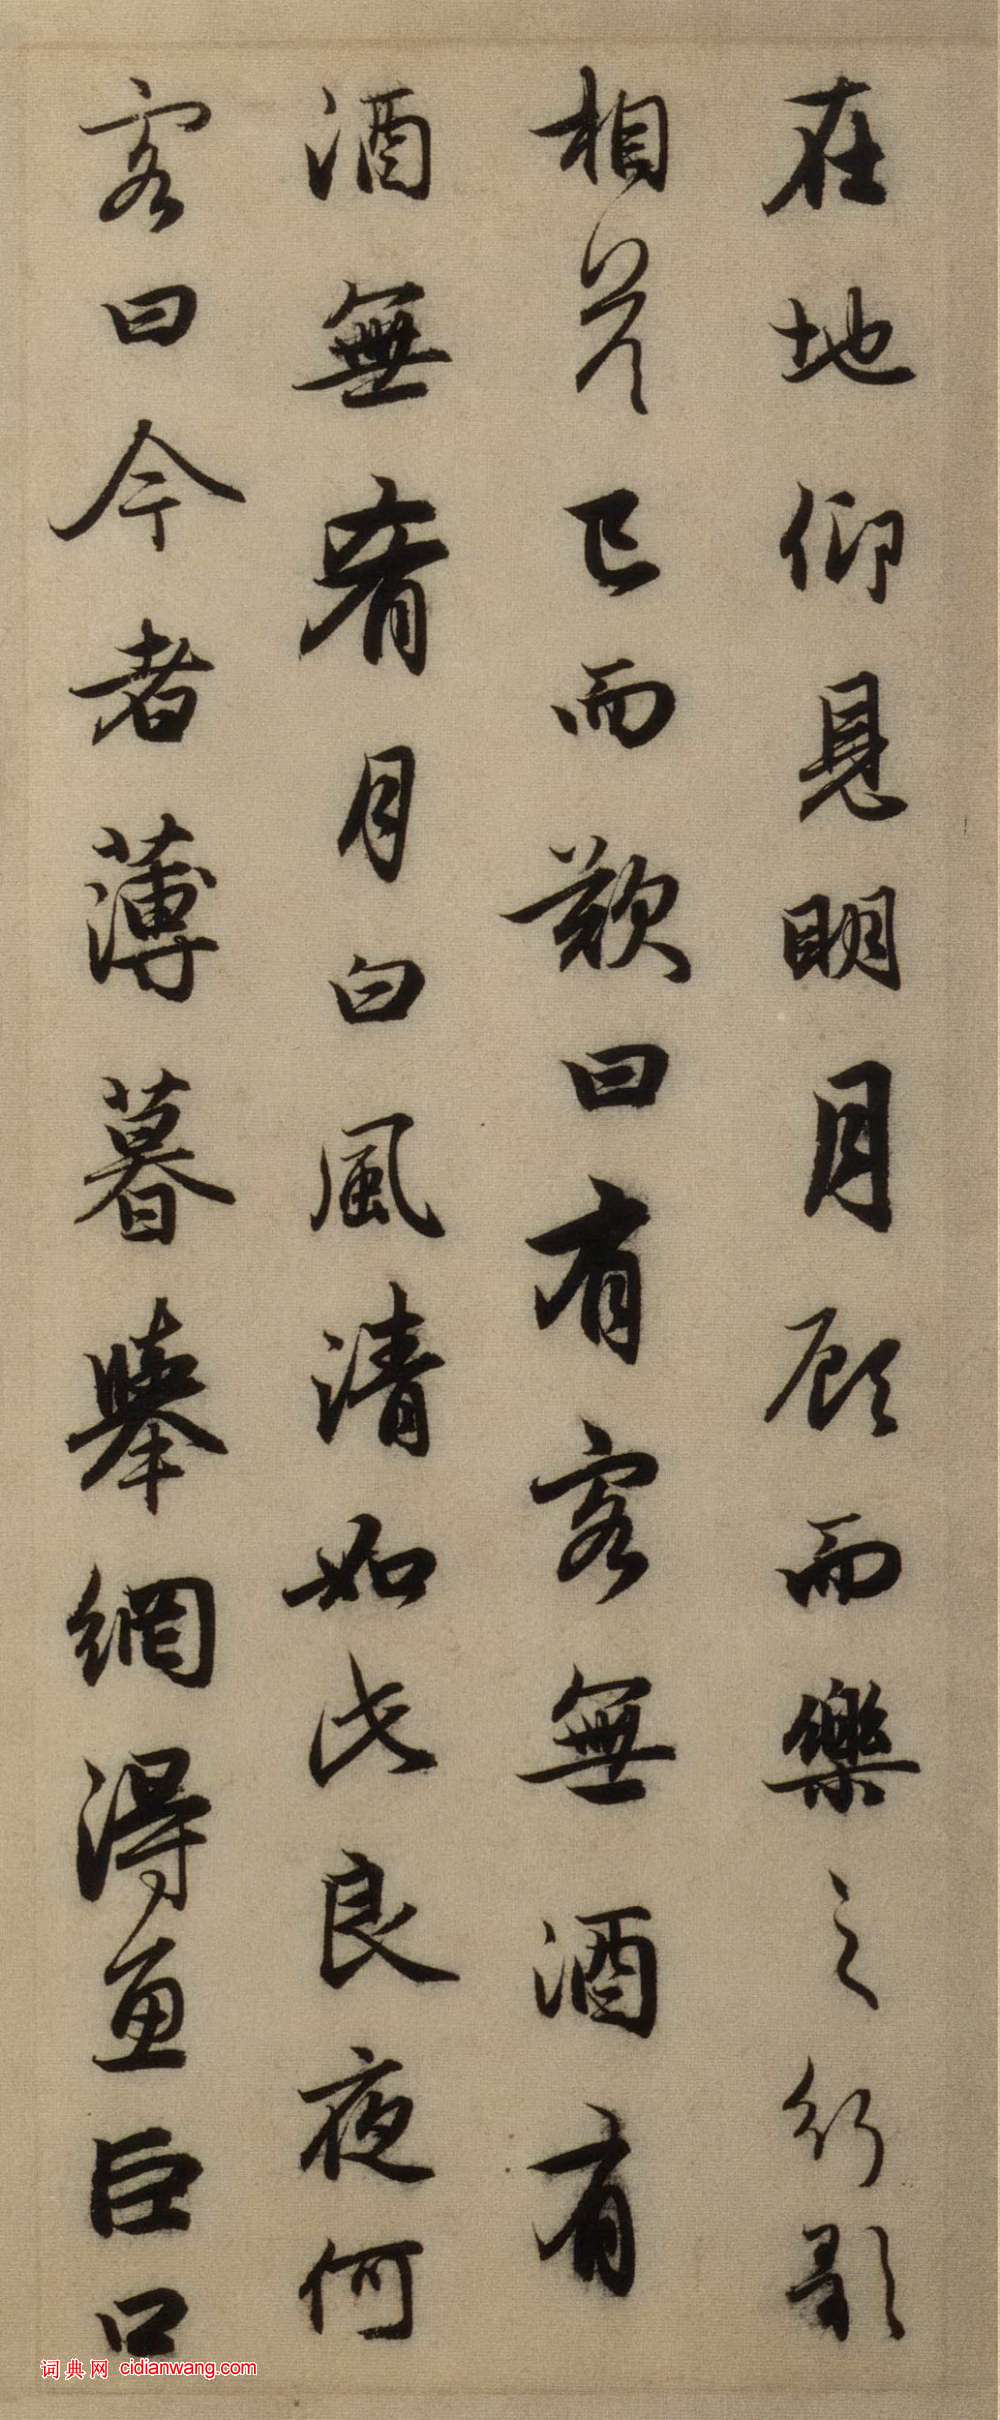 在地仰見明月顧而樂之行歌
相答已而歎曰有客無酒有
酒無肴月白風清如此良夜何
客曰今者薄暮舉網得魚巨口
词典网 cidianwang.com